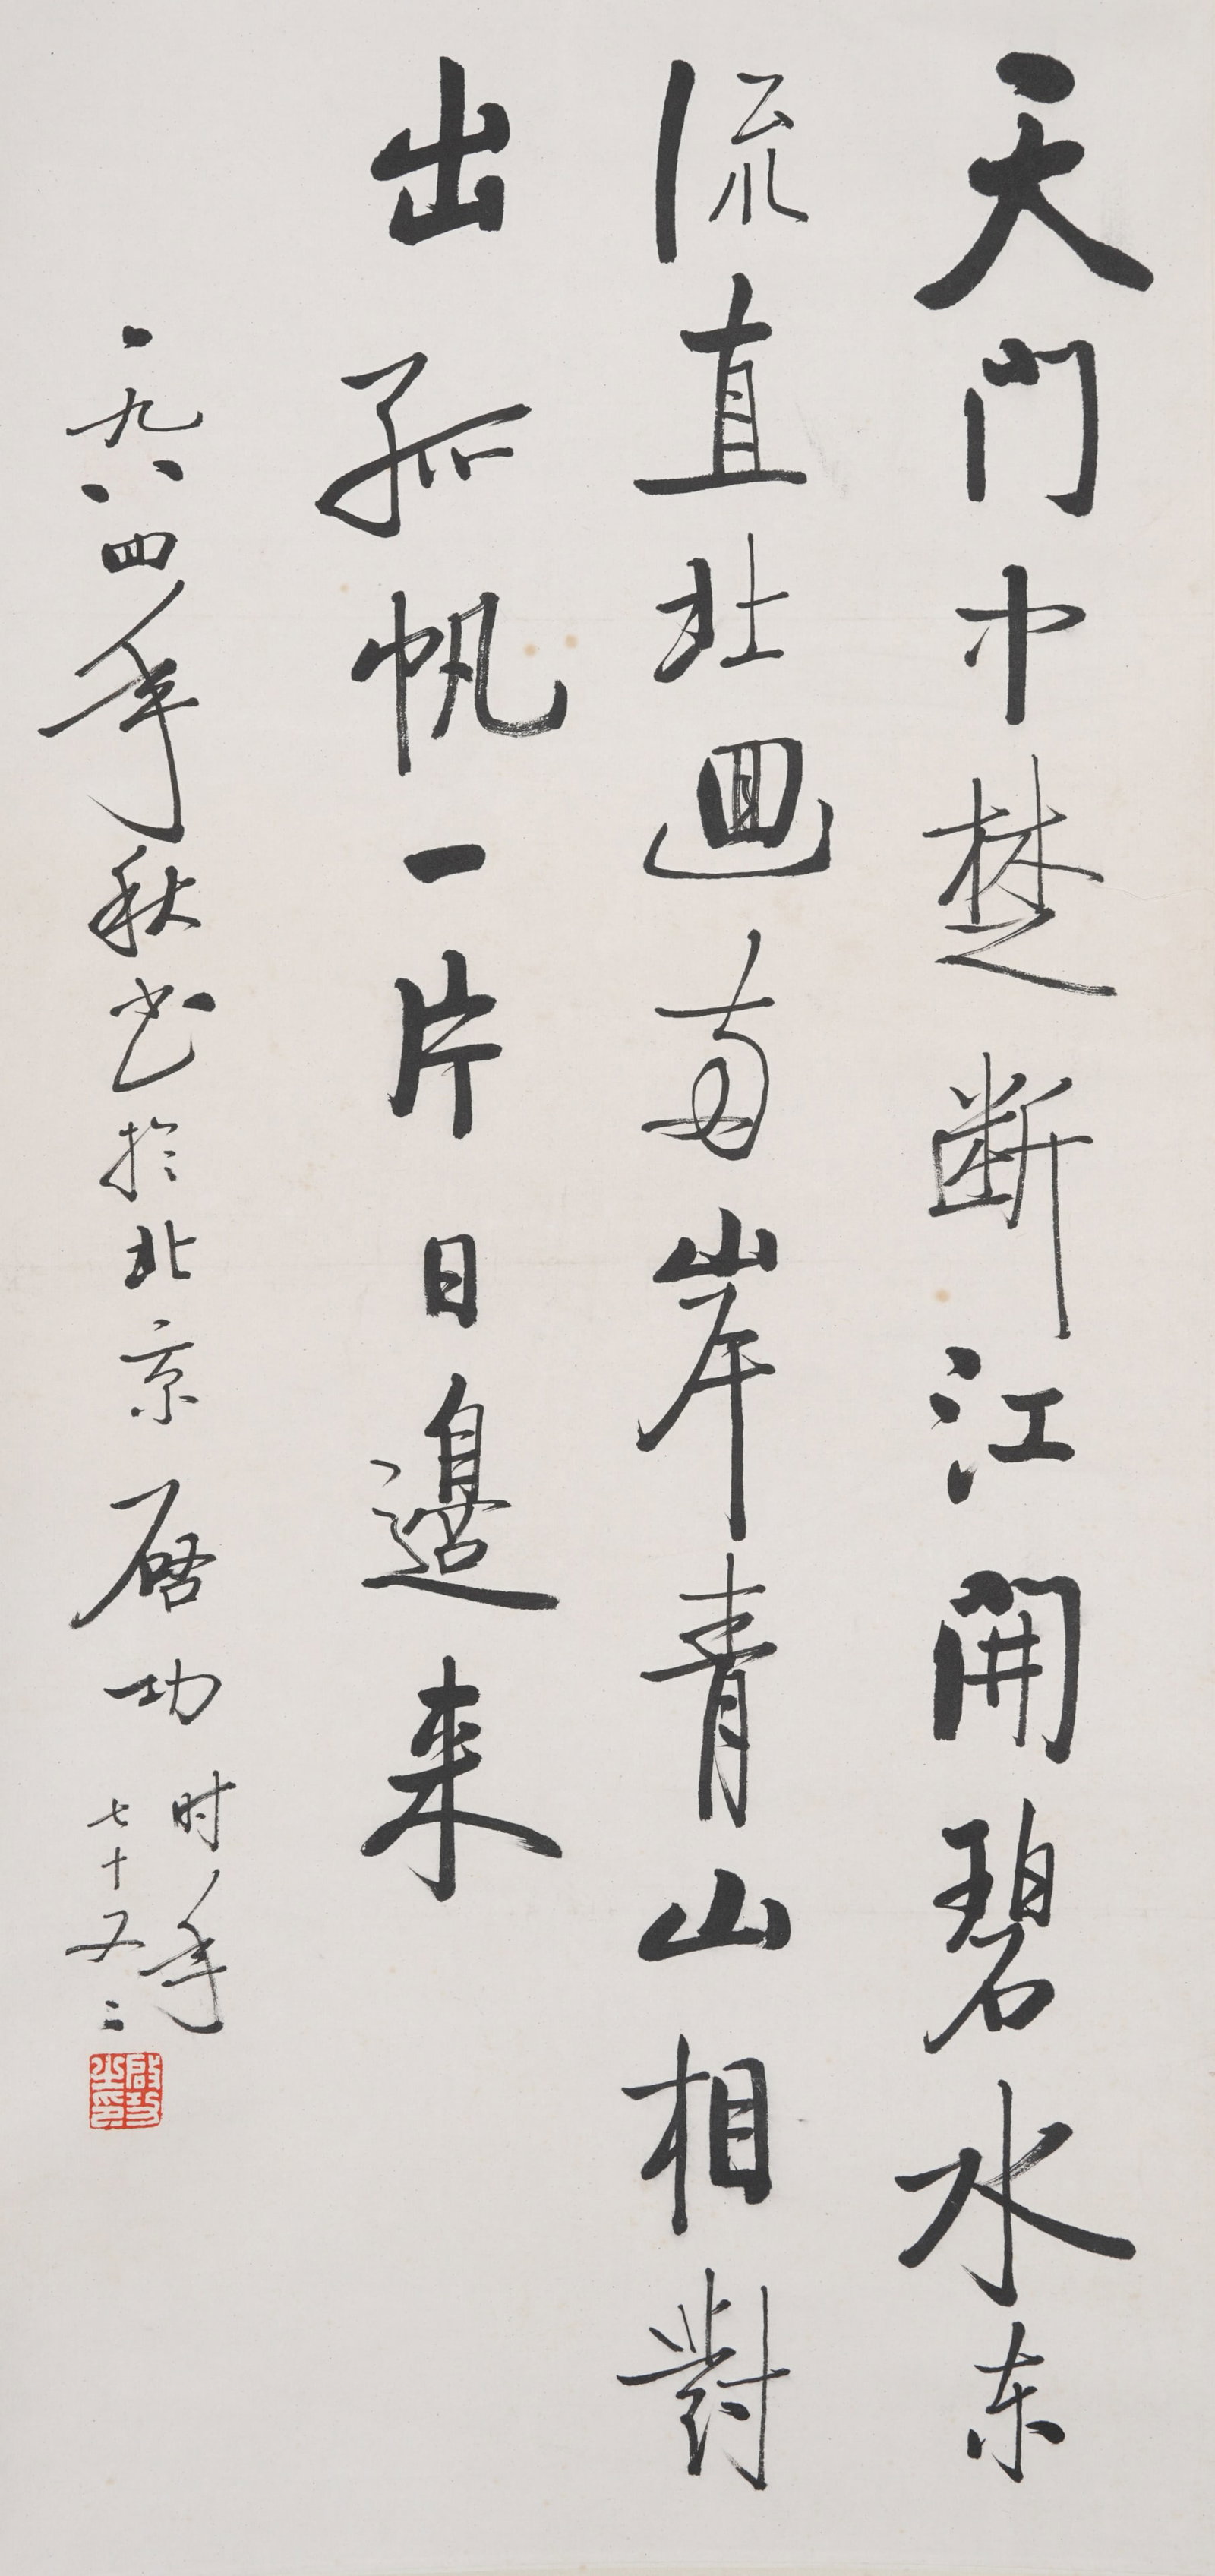 天門中楚断江開碧水东
流直北迴两岸青山相對
出孤帆一片日邊来
一九八四年秋书於北京 启功 时年七十又二
启功之印